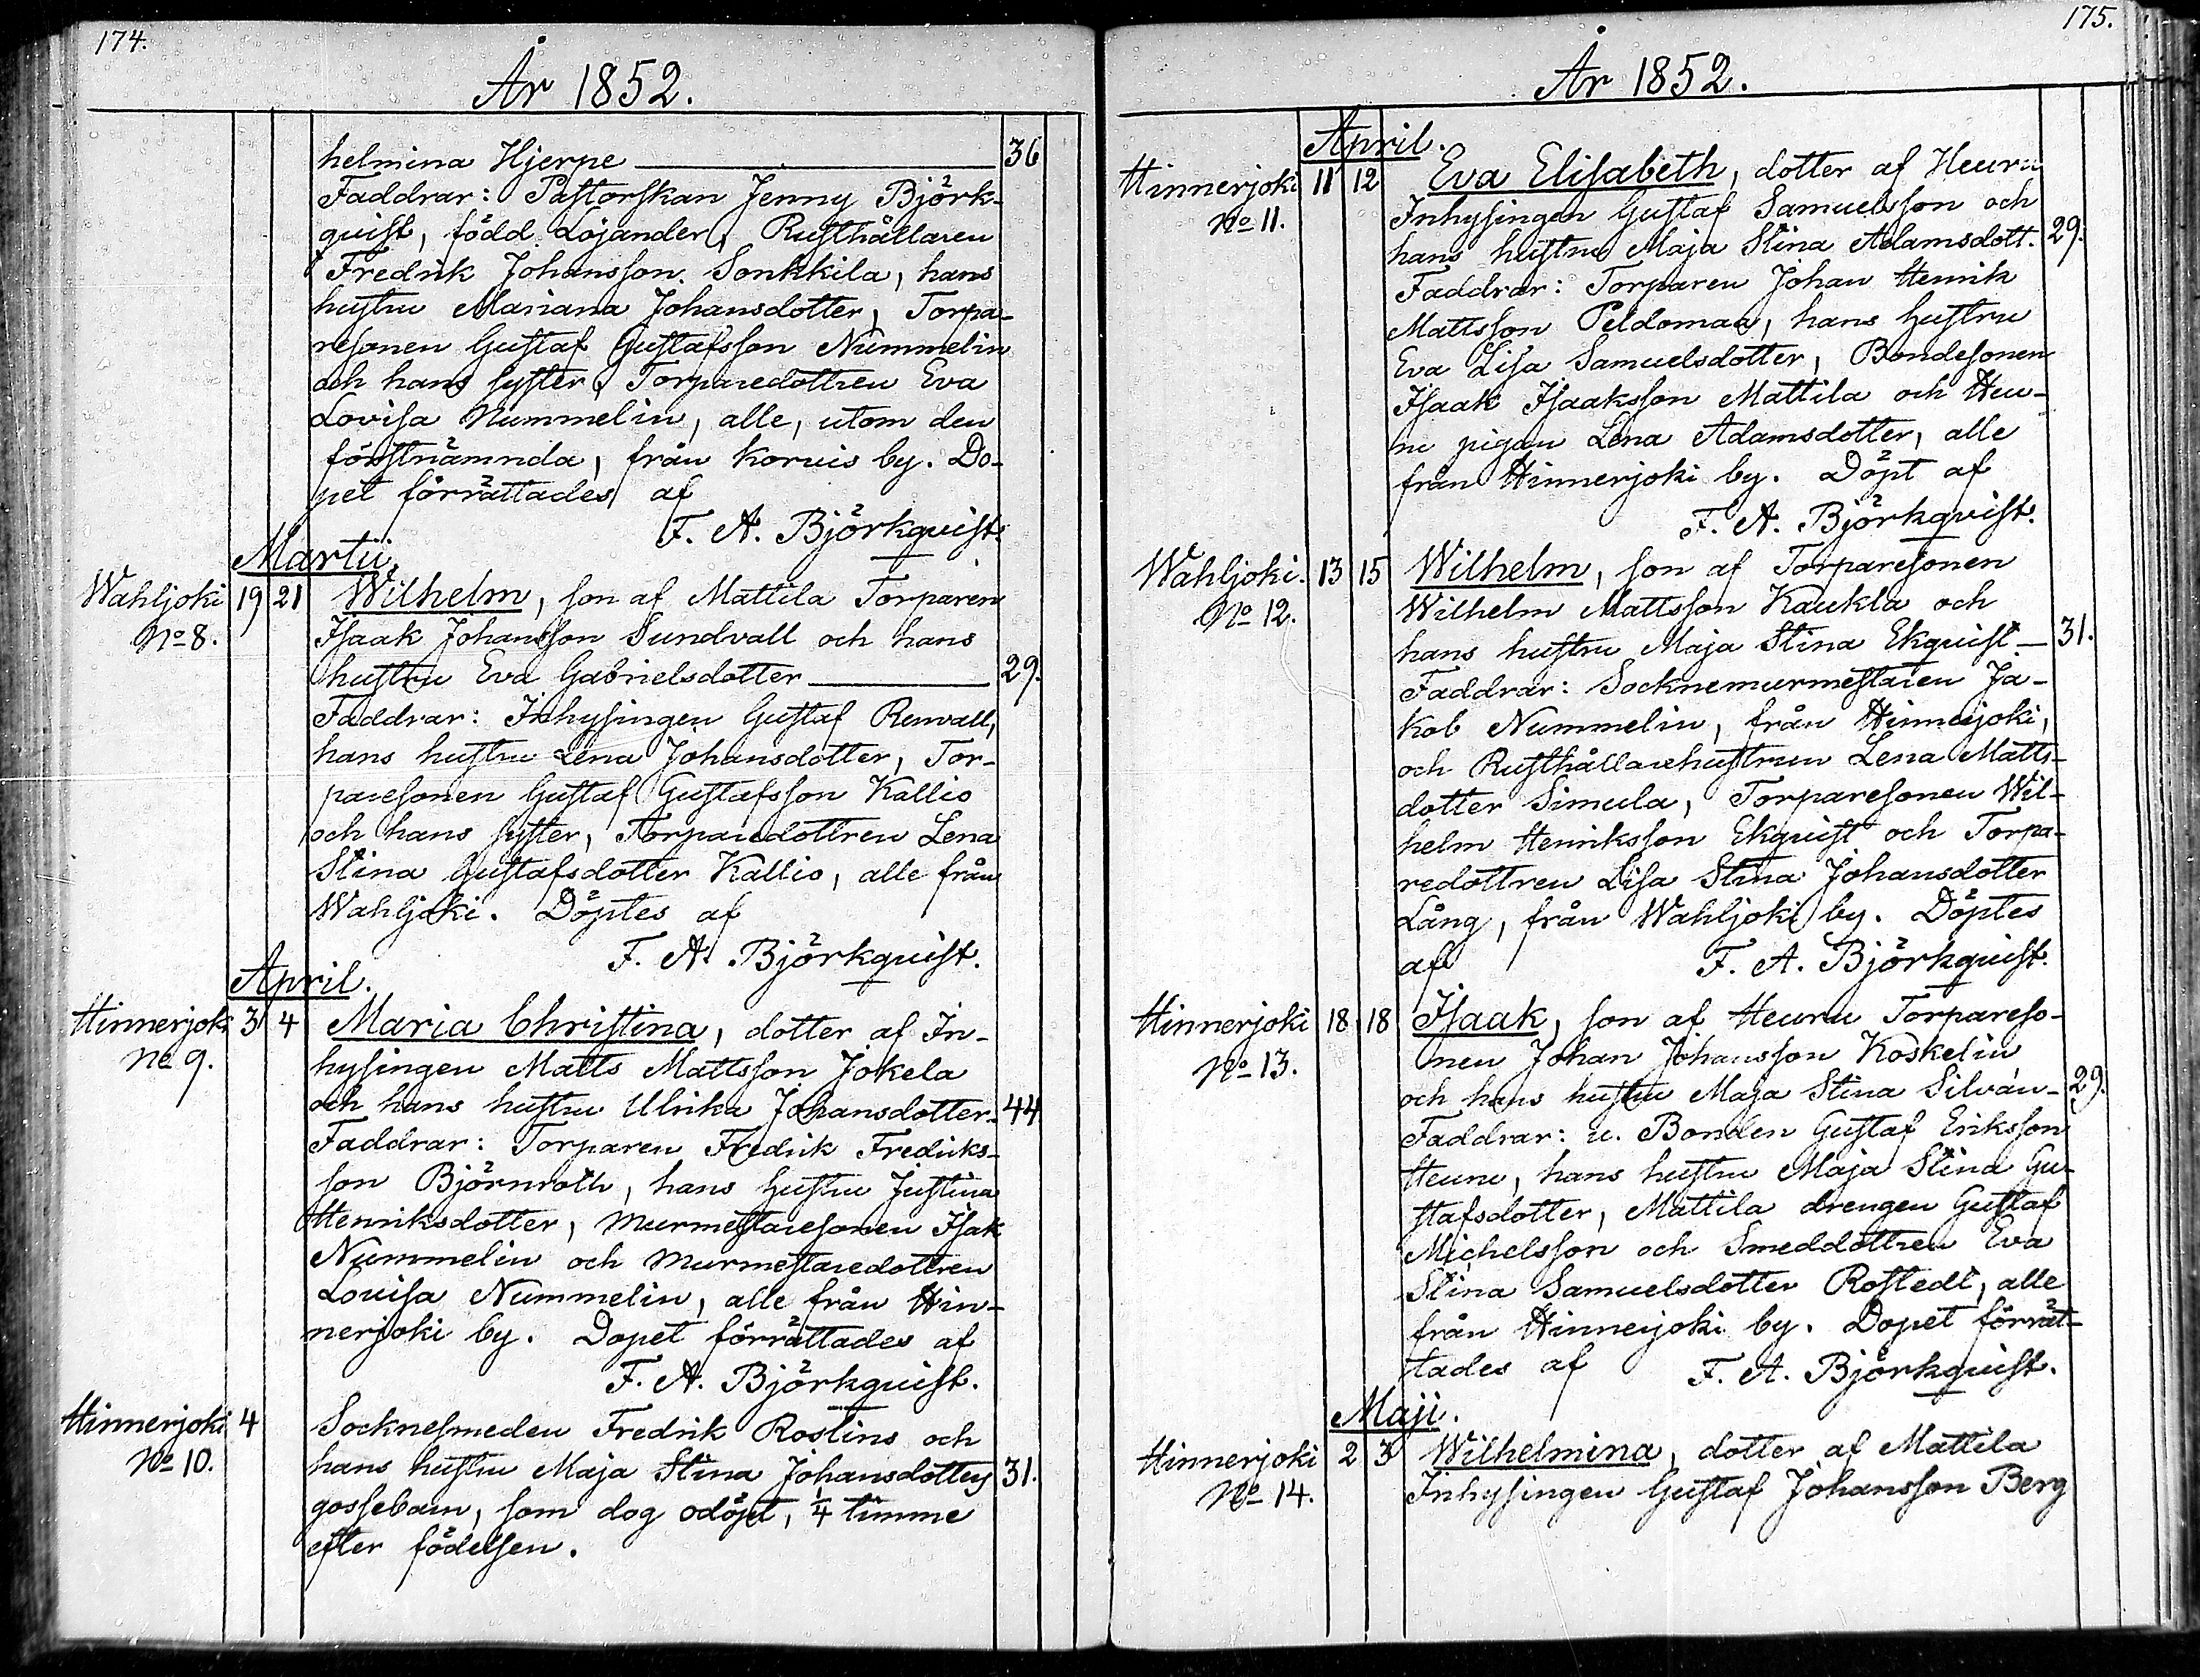 174.
År 1852.
helmina Hjerpe 36
Faddrar: Pastorskan Jenny Björk-
quist, född Lojander, Rusthållaren
Fredrik Johansson Sonkkila, hans
hustru Mariana Johansdotter, Torpa-
resonen Gustaf Gustafsson Nummelin
och hans syster, Torparedottren Eva
Lovisa Nummelin, alle, utom den
förstnämnda, från Korvis by. Do-
pet förrättades af
F. A. Björkquist.
Martii.
Wahljoki 19 21 Wilhelm, son af Mattila Torparen
No 8. Isaak Johansson Sundvall och hans
hustru Eva Gabrielsdotter 29.
Faddrar: Inhysingen Gustaf Renvall,
hans hustru Lena Johansdotter, Tor-
paresonen Gustaf Gustafsson Kallio
och hans syster, Torparedottren Lena
Stina Gustafsdotter Kallio, alle från
Wahljoki. Döptes af
F. A. Björkquist.
April.
Hinnerjoki 3 4 Maria Christina, dotter af In-
No 9. hysingen Matts Mattsson Jokela
och hans hustru Ulrika Johansdotter. 44
Faddrar: Torparen Fredrik Fredriks-
son Björnroth, hans hustru Justina
Henriksdotter, Murmestaresonen Isak
Nummelin och Murmestaredottren
Lovisa Nummelin, alle från Hin-
nerjoki by. Dopet förrättades af
F. A. Björkquist.
Hinnerjoki 4 Socknesmeden Fredrik Rostins och
No 10. hans hustru Maja Stina Johansdotters 31.
gossebarn, som dog odöpt, 1/4 timme
efter födelsen.
175.
År 1852.
April.
Hinnerjoki 11 12 Eva Elisabeth, dotter af Heuru
No 11. Inhysingen Gustaf Samuelsson och
hans hustru Maja Stina Adamsdott. 29.
Faddrar: Torparen Johan Henrik
Mattsson Peldomaa, hans hustru
Eva Lisa Samuelsdotter, Bondesonen
Isaak Isaaksson Mattila och Heu-
ru pigan Lena Adamsdotter, alle
från Hinnerjoki by. Döpt af
F. A. Björkqvist.
Wahljoki. 13 15 Wilhelm, son af Torparesonen
No 12. Wilhelm Mattsson Kaukla och
hans hustru Maja Stina Ekquist 31.
Faddrar: Socknemurmestaren Ja-
kob Nummelin, från Hinnerjoki,
och Rusthållarehustrun Lena Matts-
dotter Simula, Torparesonen Wil-
helm Henriksson Ekquist och Torpa-
redottren Lisa Stina Johansdotter
Lång, från Wahljoki by. Döptes
af F. A. Björkquist.
Hinnerjoki 18 18 Isaak, son af Heuru Torpareso-
No 13. nen Johan Johansson Koskelin
och hans hustru Maja Stina Silván 29.
Faddrar: u. Bonden Gustaf Eriksson
Heuru, hans hustru Maja Stina Gu-
stafsdotter, Mattila drengen Gustaf
Michelsson och Smeddottren Eva
Stina Samuelsdotter Rostedt, alle
från Hinnerjoki by. Dopet förrät-
tades af F. A. Björkquist.
Maji.
Hinnerjoki 2 3 Wilhelmina, dotter af Mattila
No 14. Inhysingen Gustaf Johansson Berg